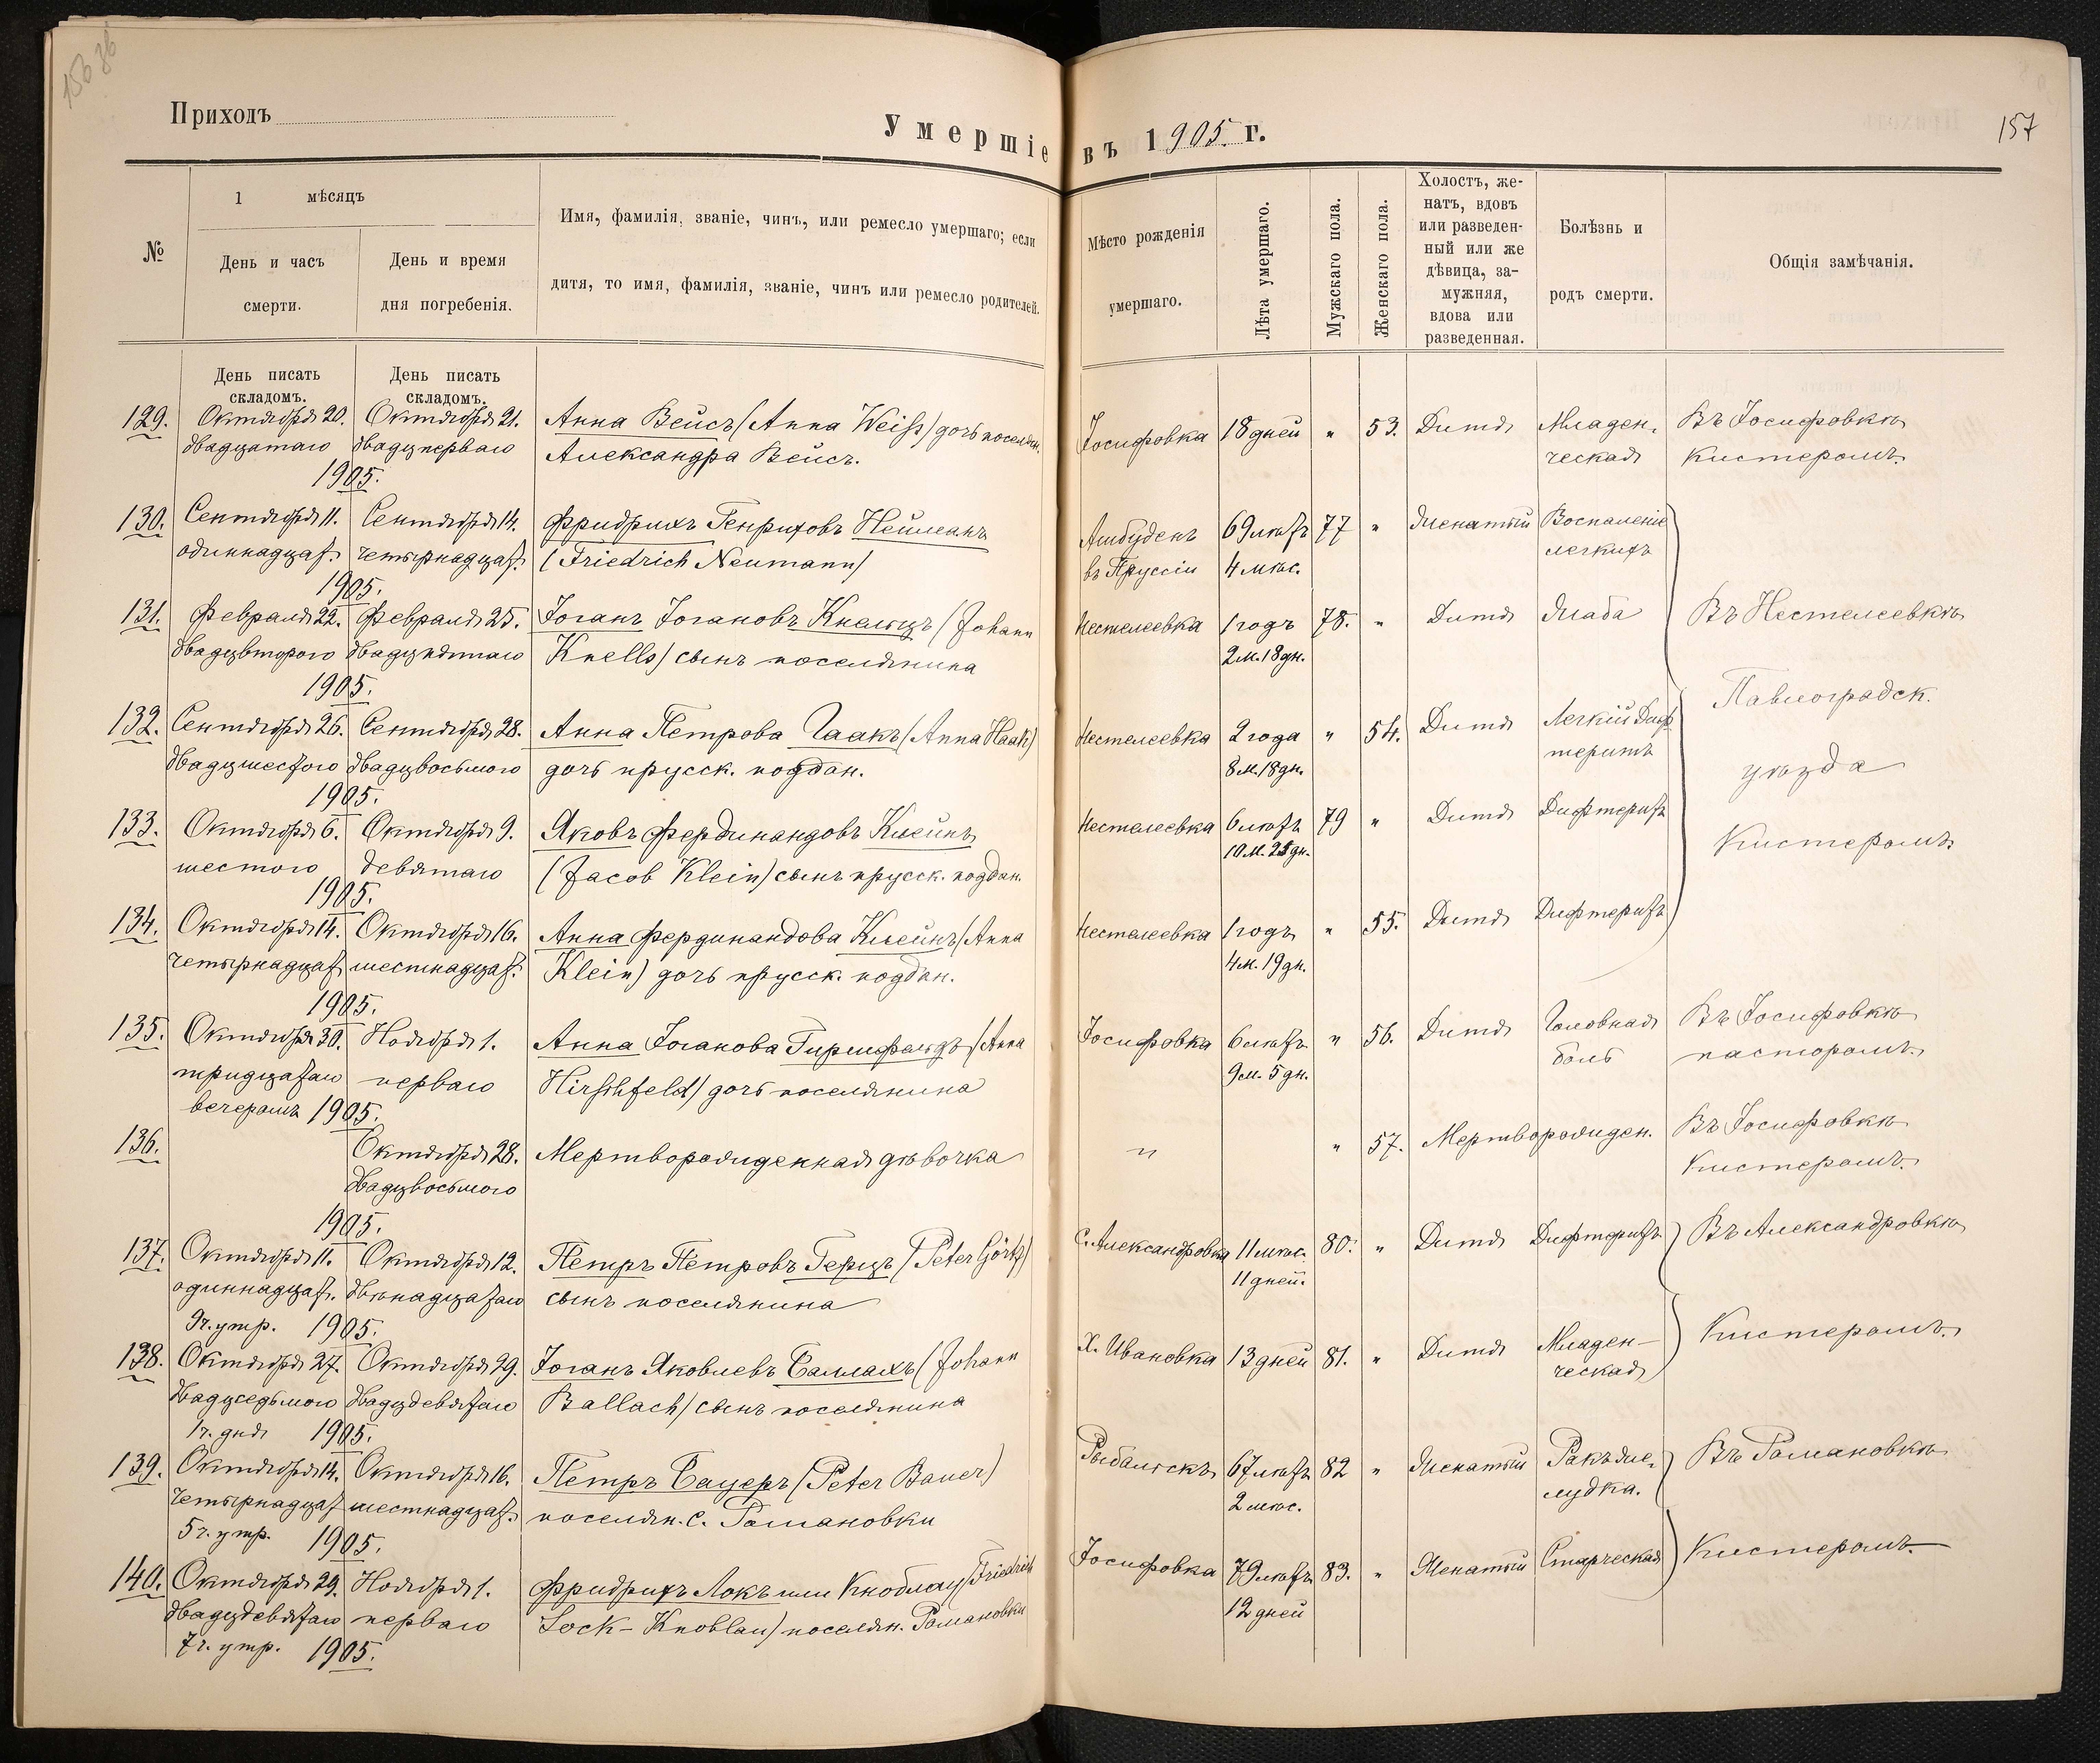 156 зв
157
Приходъ
Умершіе въ 1905 г.
№
1 мѣсяцъ
День и часъ смерти.
День и время дня погребенія.
Имя, фамилія, званіе, чинъ, или ремесло умершаго; если
дитя, то имя, фамилія, званіе, чинъ или ремесло родителей.
Мѣсто рожденія умершаго.
Лѣта умершаго.
Мужскаго пола.
Женскаго пола.
Холостъ, же-
натъ, вдовъ
или разведен-
ный или же
дѣвица, за-
мужняя,
вдова или
разведенная.
Болѣзнь и родъ смерти.
Общія замѣчанія.
День писать складомъ.
День писать складомъ.
129. Октября 20. Октября 21. Анна Вейсъ (Anna Weiss) дочь поселян. Іосифовка 18 дней " 53. Дитя Младен- Въ Іосифовкѣ
двадцатаго двадцперваго Александра Вейсъ. ческая Кистеромъ.
1905.
130. Сентября 11. Сентября 14. Фридрихъ Генриховъ Нейманъ 69 лѣтъ 77 " Женатый Воспаленіе
одиннадцат. четырнадцат. (Friedrich Neumann) въ Пруссіи 4 мѣс. легкихъ
1905.
131. Февраля 22. Февраля 25. Іоганъ Іогановъ Кнельцъ (Johann Нестелеевка 1 годъ 78. " Дитя Жаба Въ Нестелеевкѣ
двадцвторого двадцпятаго Knells) сынъ поселянина 2 м. 18 дн.
1905.
Павлоградск.
132. Сентября 26. Сентября 28. Анна Петрова Гаакъ (Anna Haak) Нестелеевка 2 года " 54. Дитя Легкій Диф-
двадцшестого двадцвосьмого дочь прусск. поддан. 8 м. 18 дн. теритъ уѣзда
1905.
133. Октября 6. Октября 9. Яковъ Фердинандовъ Клейнъ Нестелеевка 6 лѣтъ 79 " Дитя Дифтеритъ Кистеромъ.
шестого девятаго (Jacob Klein) сынъ прусск. поддан. 10 м. 25 дн.
1905.
134. Октября 14. Октября 16. Анна Фердинандова Клейнъ (Anna Нестелеевка 1 годъ " 55. Дитя Дифтеритъ
четырнадцат. шестнадцат. Klein) дочь прусск. поддан. 4 м. 19 дн.
1905.
135. Октября 30. Ноября 1. Анна Іоганова Гиршфельдъ (Anna Іосифовка 6 лѣтъ " 56. Дитя Головная Въ Іосифовкѣ
тридцатаго перваго Hirschfeld) дочь поселянина 9 м. 5 дн. боль пасторомъ.
вечеромъ 1905.
136. Октября 28. Мертворожденная дѣвочка " " 57. Мертворожден. Въ Іосифовкѣ
двадцвосьмого Кистеромъ.
1905.
137. Октября 11. Октября 12. Петръ Петровъ Герцъ (Peter Görtz) С. Александровка 11 мѣс. 80. " Дитя Дифтеритъ Въ Александровкѣ
одиннадцат. двѣнадцатаго сынъ поселянина 11 дней.
9 ч. утр. 1905.
138. Октября 27. Октября 29. Іоганъ Яковлевъ Баллахъ (Johann Х. Ивановка 13 дней 81. " Дитя Младен- Кистеромъ.
двадцседьмого двадцдевятаго Ballach) сынъ поселянина ческая
1 ч. дня 1905.
139. Октября 14. Октября 16. Петръ Бауеръ (Peter Bauer) Рыбальскъ 67 лѣтъ 82 " Женатый Ракъ же- Въ Романовкѣ
четырнадцат шестнадцат. поселян. с. Романовки 2 мѣс. лудка.
5 ч. утр. 1905.
140. Октября 29. Ноября 1. Фридрихъ Локъ или Кноблау (Friedrich Іосифовка 79 лѣтъ 83. " Женатый Старческая Кистеромъ.
двадцдевятаго перваго Lock - Knoblau) поселян. Романовки 12 дней
7 ч. утр. 1905.